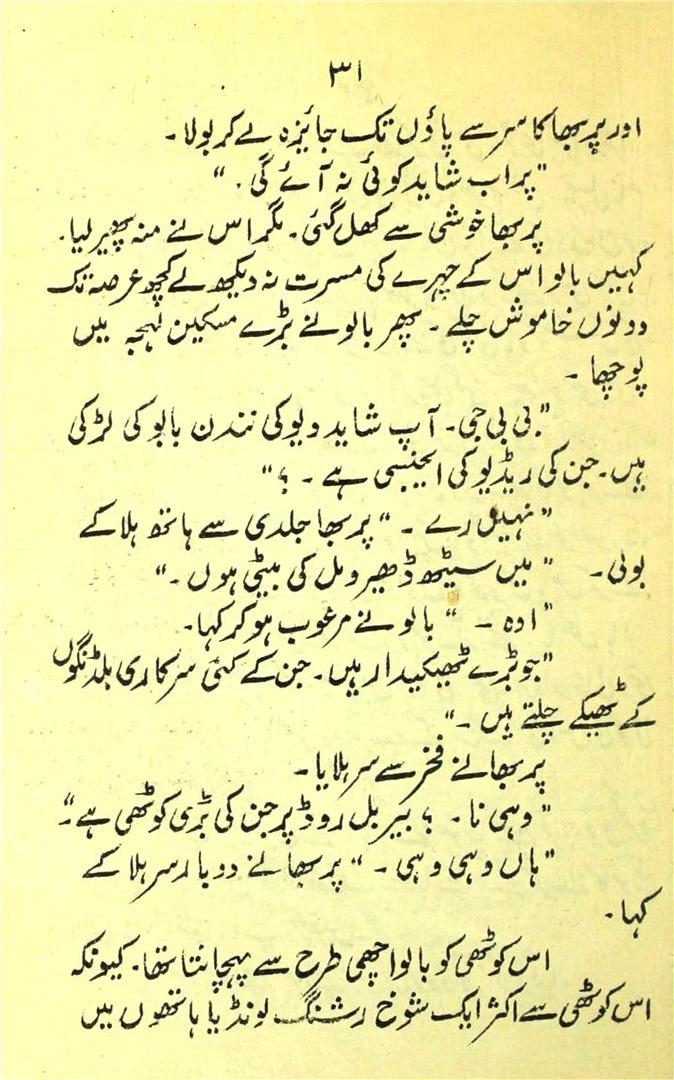 ۳۱
اور پربھا کا سر سے پاؤں تک جائزہ لے کر بولا۔
"پر اب شاید کوئی نہ آئے گی۔"
پربھا خوشی سے کھل گئی۔ مگر اس نے منہ پھیر لیا۔
کہیں بالو اس کے چہرے کی مسرت نہ دیکھ لے کچھ عرصہ تک
دونوں خاموش چلے۔ پھر بالو نے بڑے مسکین لہجہ میں
پوچھا۔
"بی بی جی۔ آپ شاید دیوکی نندن بابو کی لڑکی
ہیں۔ جن کی ریڈیو کی ایجنسی ہے۔ ؟"
"نہیں رے۔" پربھا جلدی سے ہاتھ ہلا کے
بولی۔ "میں سیٹھ ڈھیرو مل کی بیٹی ہوں۔"
"اوہ۔" بالو نے مرعوب ہو کر کہا۔
"جو بڑے ٹھیکیدار ہیں۔ جن کے کئی سرکاری بلڈنگوں
کے ٹھیکے چلتے ہیں۔"
پربھا نے فخر سے سر ہلایا۔
"وہی نا۔ ؟ بیربل روڈ پر جن کی بڑی کوٹھی ہے۔"
"ہاں وہی وہی۔" پربھا نے دوبار سر ہلا کے
کہا۔
اس کوٹھی کو بالو اچھی طرح سے پہچانتا تھا۔ کیونکہ
اس کوٹھی سے اکثر ایک شوخ و شنگ لونڈیا ہاتھوں میں